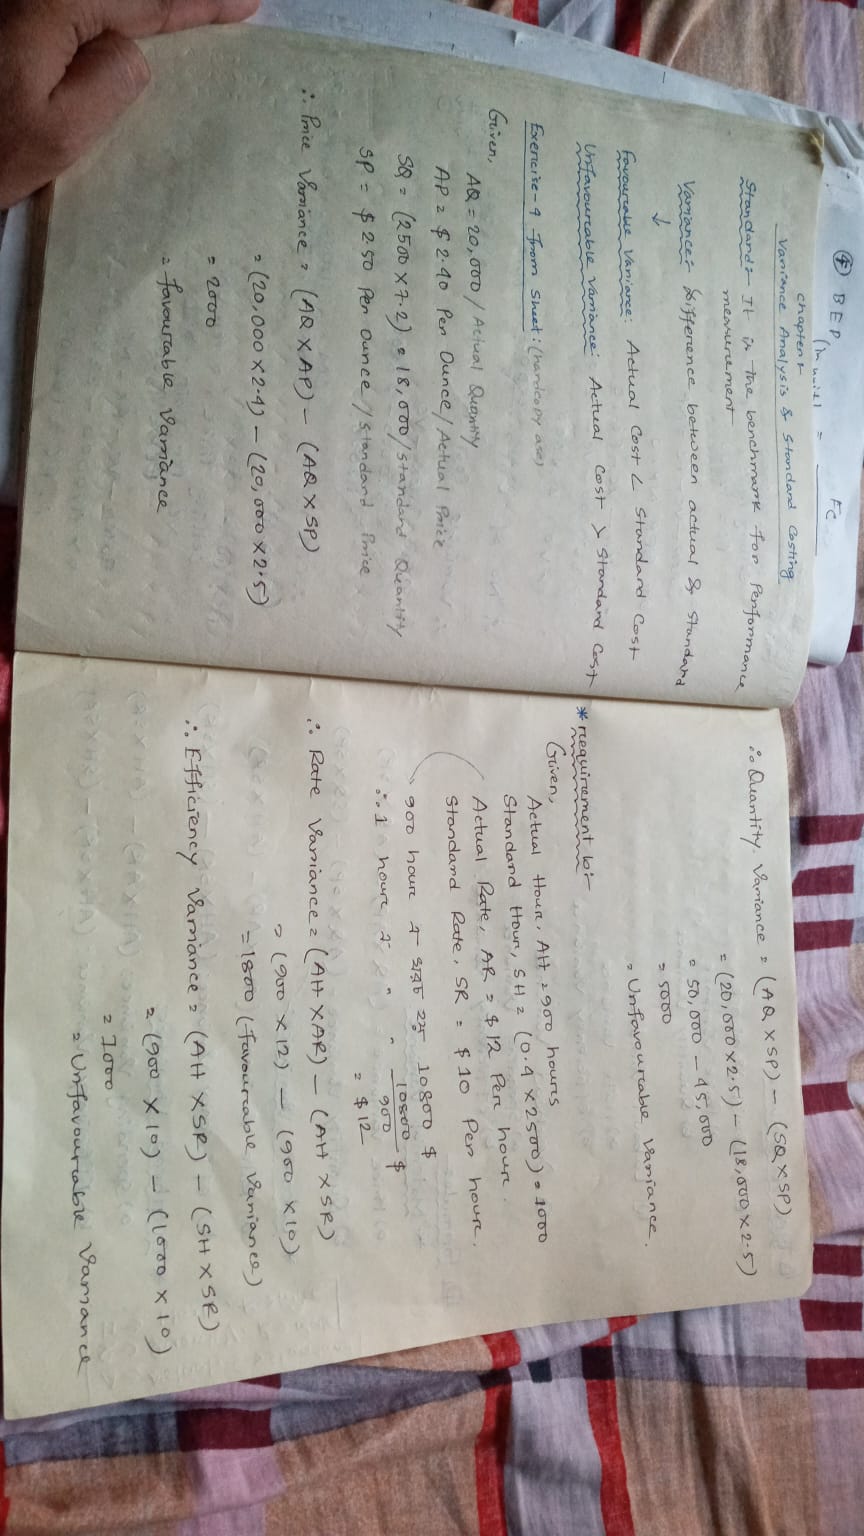 ④ BEP
(in unit) = Fc
Chapter
Variance Analysis & Standard Costing
Standard:- It is the benchmark for Performance
measurement
Variance:- Difference between actual & Standard
↓
Favourable Variance: Actual Cost < Standard Cost
Unfavourable Variance: Actual Cost > Standard Cost
Exercise-9 from Sheet: (hardcopy
Given,
AQ = 20,000 / Actual Quantity
AP = $ 2.40 Per Ounce / Actual Price
SQ = (2500 X 7.2) = 18,000 / Standard Quantity
SP = $ 2.50 Per Ounce / Standard Price
∴ Price Variance = (AQ X AP) - (AQ X SP)
= (20,000 X 2.4) - (20,000 X 2.5)
= 2000
= favourable Variance
∴ Quantity Variance = (AQ X SP) - (SQ X SP)
= (20,000 X 2.5) - (18,000 X 2.5)
= 50,000 - 45,000
= 5000
= Unfavourable Variance.
* requirement b:-
Given,
Actual Hour, AH = 900 hours
Standard Hour, SH = (0.4 X 2500) = 1000
Actual Rate, AR = $ 12 Per hour
Standard Rate, SR = $ 10 Per hour.
900 houre 10800 $
∴ 1 houre " " 10800/900 $
= $ 12
∴ Rate Variance = (AH X AR) - (AH X SR)
= (900 X 12) - (900 X 10)
= 1800 (favourable Variance)
∴ Efficiency Variance = (AH X SR) - (SH X SR)
= (900 X 10) - (1000 X 10)
= 1000
= Unfavourable Variance